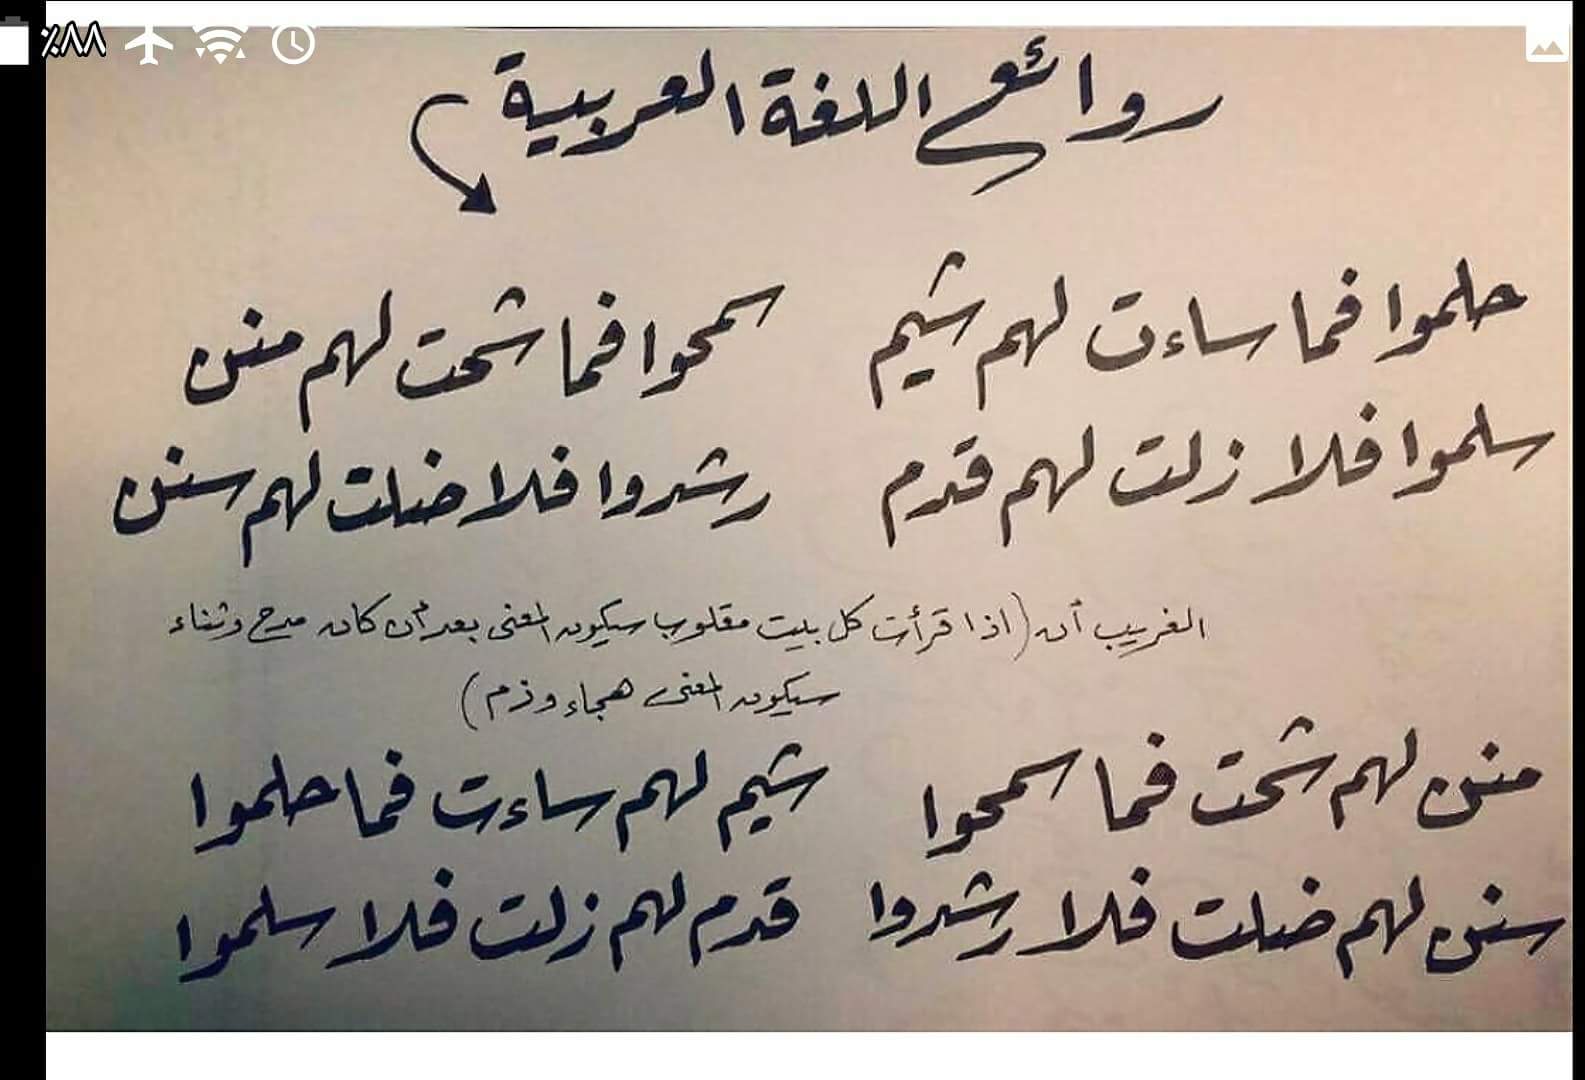 ٪٨٨
روائع اللغة العربية
حلموا فما ساءت لهم شيم سمحوا فما شحت لهم منن
سلموا فلا زلت لهم قدم رشدوا فلا ضلت لهم سنن
الغريب أن (اذا قرأت كل بيت مقلوب سيكون المعنى بعد أن كان مدح وثناء
سيكون المعنى هجاء وذم)
منن لهم شحت فما سمحوا شيم لهم ساءت فما حلموا
سنن لهم ضلت فلا رشدوا قدم لهم زلت فلا سلموا